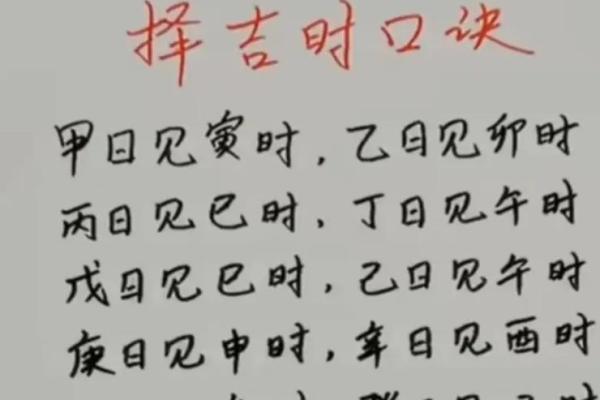 择吉时口诀
甲日见寅时，乙日见卯时
丙日见巳时，丁日见午时
戊日见巳时，己日见午时
庚日见申时，辛日见酉时